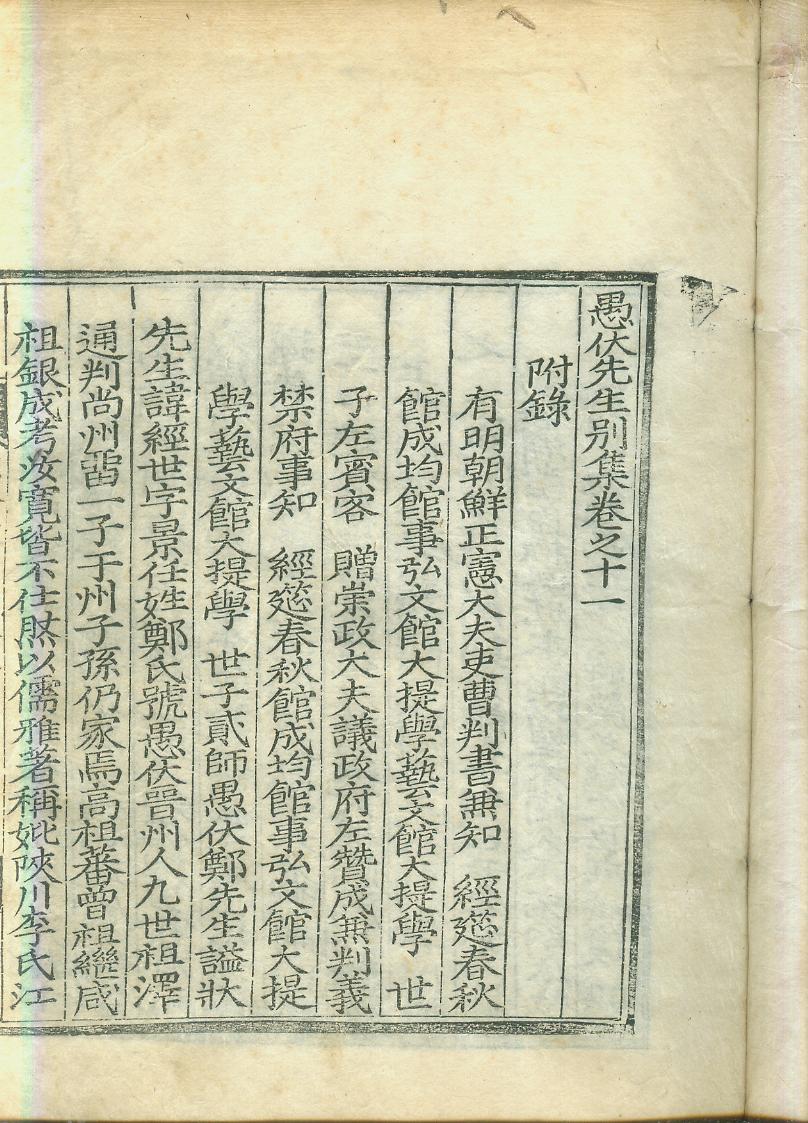 愚伏先生別集卷之十一
附錄
有明朝鮮正憲大夫吏曹判書兼知 經筵春秋
館成均館事弘文館大提學藝文館大提學 世
子左賓客 贈崇政大夫議政府左贊成兼判義
禁府事知 經筵春秋館成均館事弘文館大提
學藝文館大提學 世子貳師愚伏鄭先生謚狀
先生諱經世字景任姓鄭氏號愚伏晉州人九世祖澤
通判尚州畱一子于州子孫仍家焉高祖蕃曾祖繼咸
祖銀成考汝寬皆不仕然以儒雅著稱妣陜川李氏江